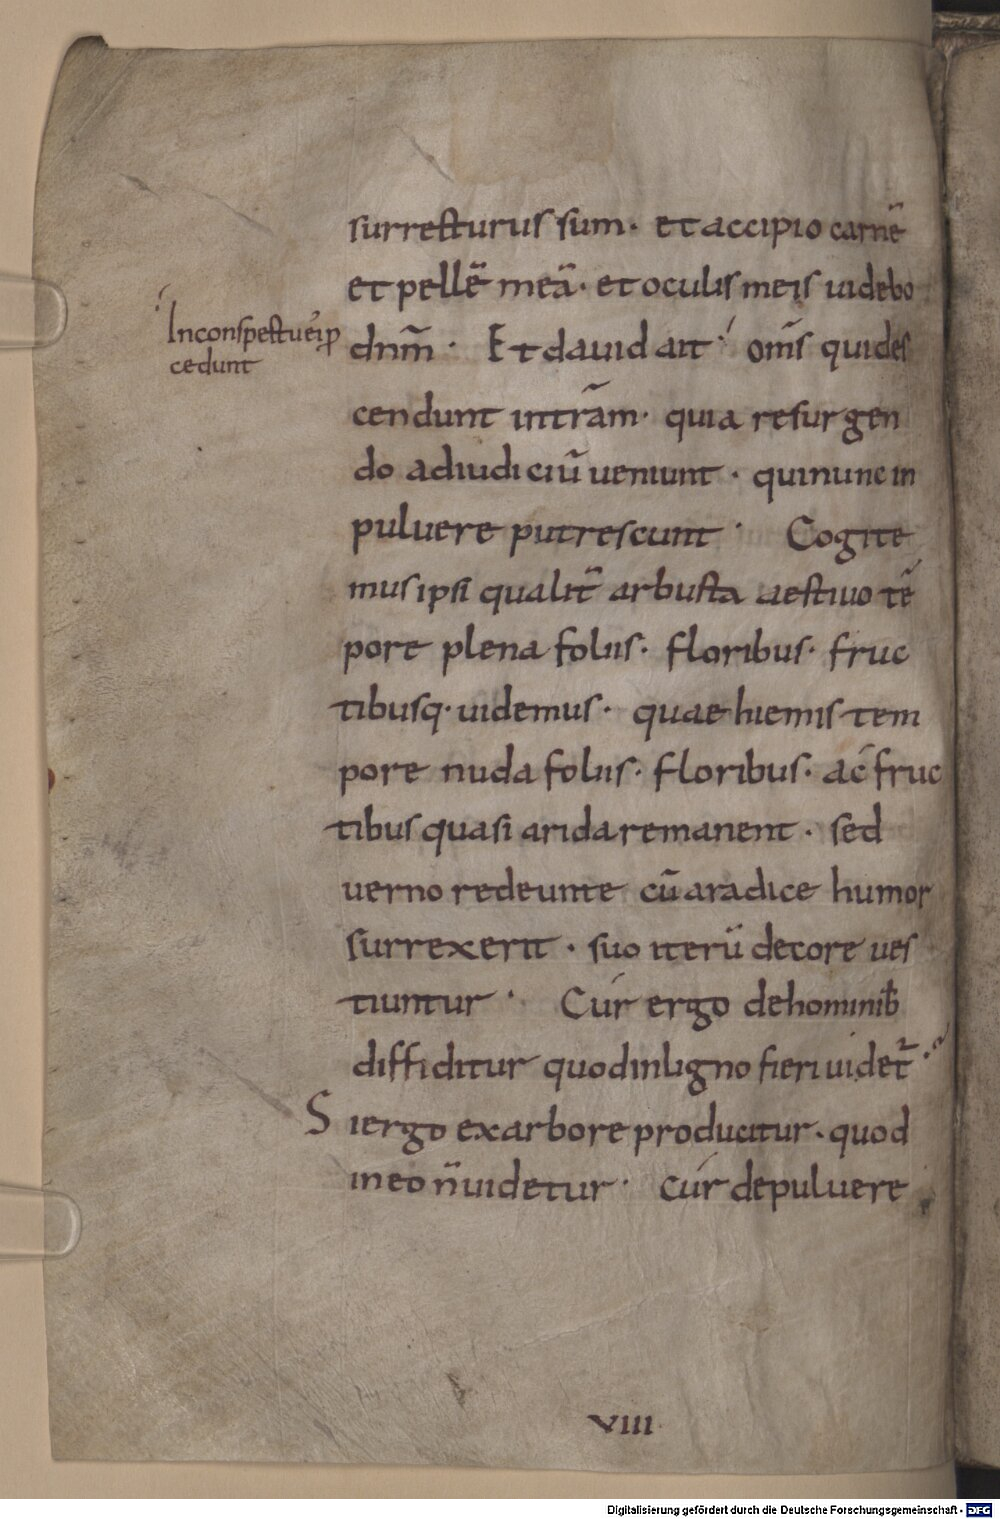 surrecturus sum· et accipio carnē
et pellē meā· et oculis meis uidebo
Inconspectu ei p̄
cedunt
dnm̄· Et dauid ait· oms̄ qui des
cendunt in tr̄am· quia resurgen
do ad iudiciū ueniunt· qui nunc in
puluere putrescunt· Cogite
mus ipsi qualit̄ arbusta aestiuo tē
pore plena foliis· floribus· fruc
tibusq· uidemus· quae hiemis tem
pore nuda foliis· floribus· ac fruc
tibus quasi arida remanent· sed
uerno redeunte cū a radice humor
surrexerit· suo iterū decore ues
tiuntur· Cur ergo de hominib
diffiditur quod in ligno fieri uidet̄·
Si ergo ex arbore producitur· quod
in eo n̄ uidetur· cur de puluere
VIII
Digitalisierung gefördert durch die Deutsche Forschungsgemeinschaft - DFG